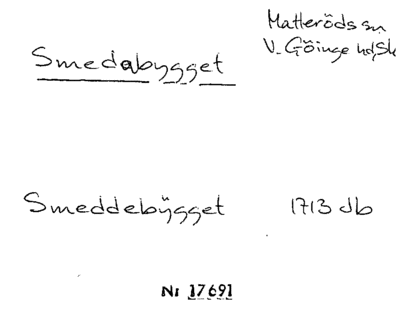 Matteröds sn
V. Göinge hd, Sk
Smedabygget
Smeddebÿgget 1713 Jb
Nr 17691